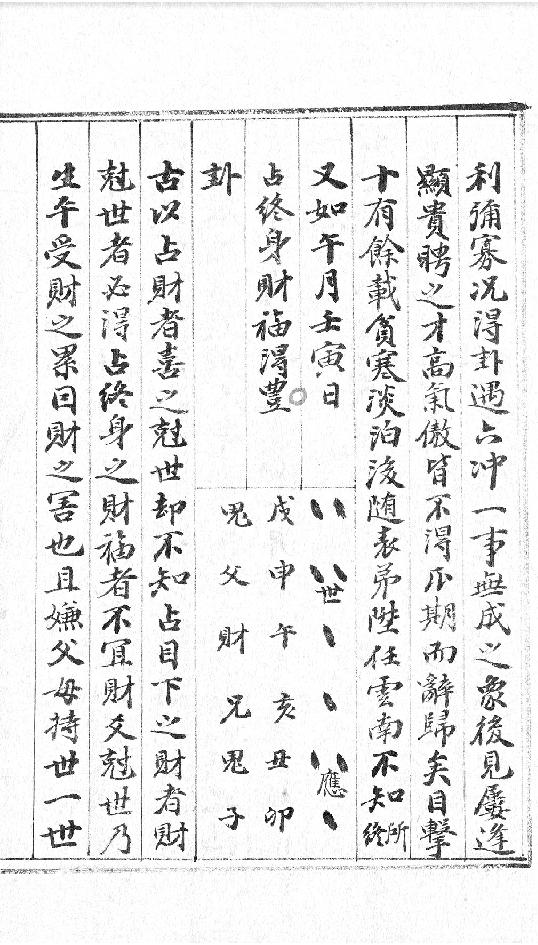 利彌寡况得卦遇六冲一事無成之象後見屢逢
顯貴聘之才高氣傲皆不得瓜期而辭歸矣目擊
十有餘載貧寒淡泊後随表弟陞任雲南不知所終
又如午月壬寅日
占終身財福得豊
卦
世
應
戌申午亥丑卯
鬼父財兄鬼子
古以占財者喜之尅世却不知占目下之財者財
尅世者必得占終身之財福者不宜財爻尅世乃
生平受財之累因財之害也且嫌父母持世一世